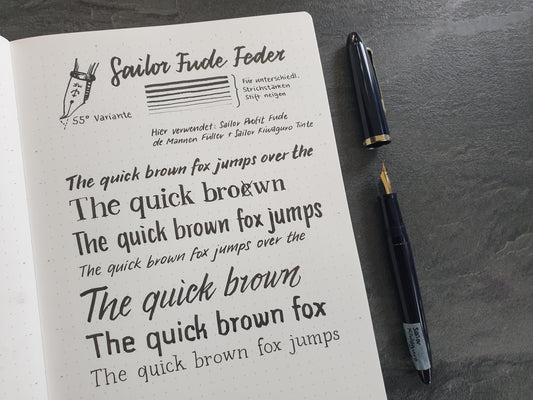 Sailor Fude Feder
Für unterschiedl.
Strichstärken
Stift neigen
55° Variante
Hier verwendet: Sailor Profit Fude
de Mannen Füller + Sailor Kiwaguro Tinte
The quick brown fox jumps over the
The quick broewn
The quick brown fox jumps
The quick brown fox jumps over the
The quick brown
The quick brown fox
The quick brown fox jumps